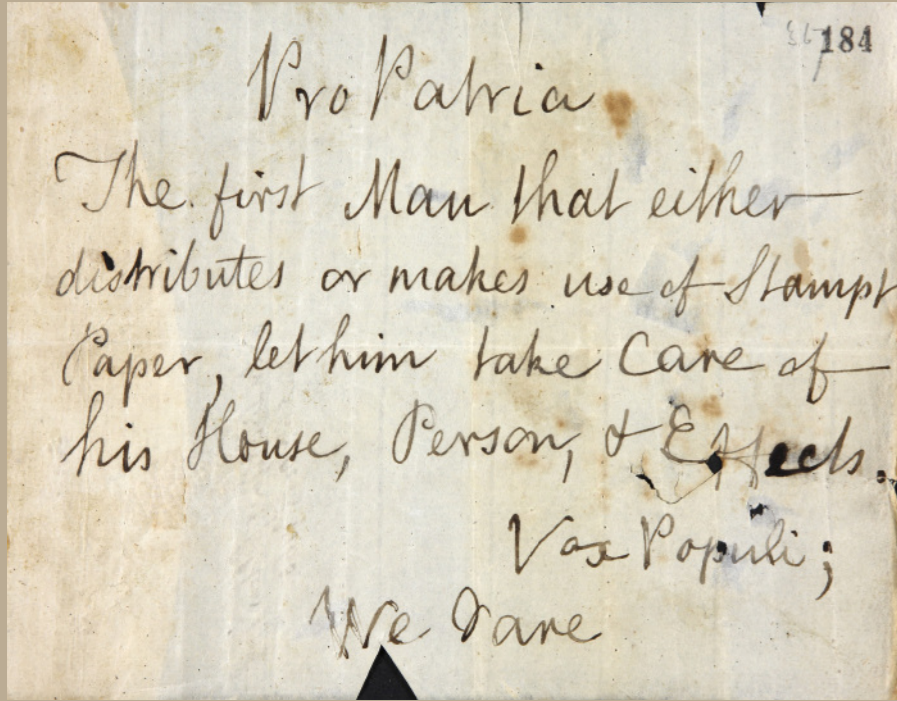 184
Pro Patria
The first Man that either
distributes or makes use of Stampt
Paper, let him take Care of
his House, Person, & Effects.
Vox Populi;
We dare